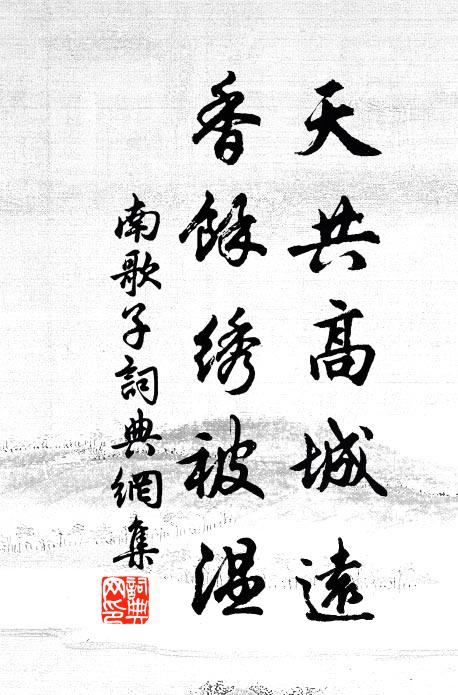 天共高城遠
香餘綉被溫
南歌子詞典網集
詞典網印